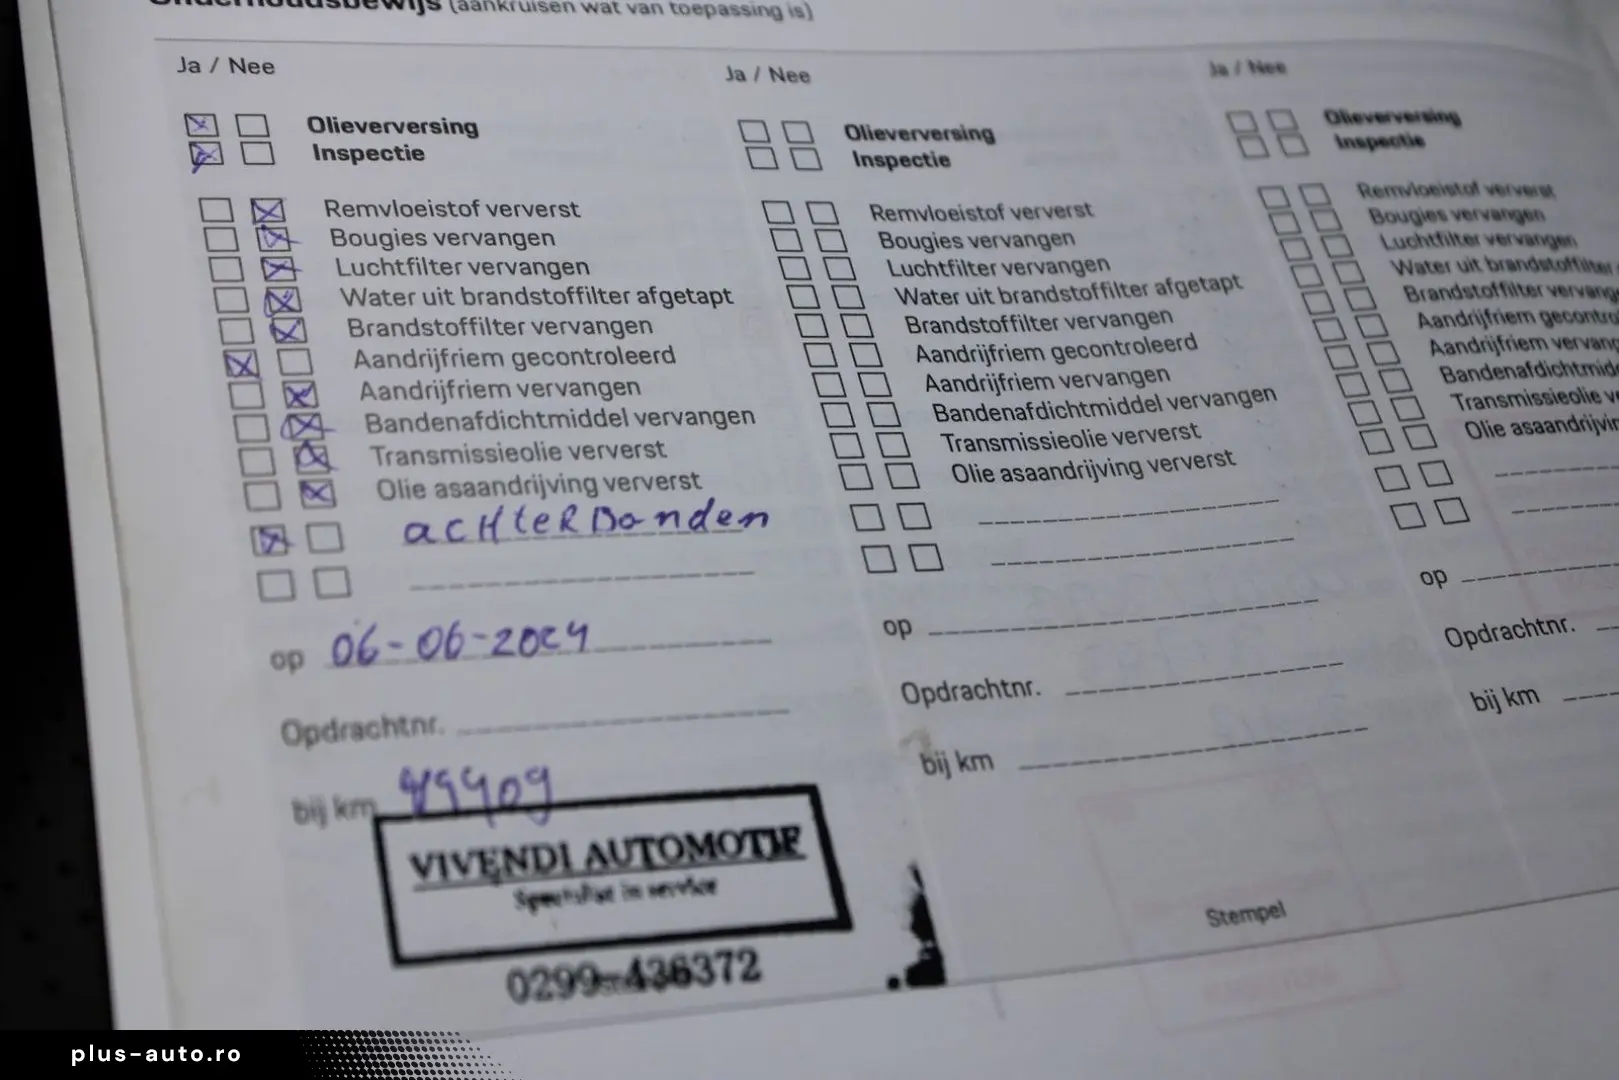 Onderhoudsbewijs (aankruisen wat van toepassing is)
Ja / Nee
Olieverversing
Inspectie
Remvloeistof ververst
Bougies vervangen
Luchtfilter vervangen
Water uit brandstoffilter afgetapt
Brandstoffilter vervangen
Aandrijfriem gecontroleerd
Aandrijfriem vervangen
Bandenafdichtmiddel vervangen
Transmissieolie ververst
Olie asaandrijving ververst
acHteRbanden
op 06-06-2024
Opdrachtnr.
bij km
VIVENDI AUTOMOTIF
Specialist in service
0299-436372
Ja / Nee
Olieverversing
Inspectie
Remvloeistof ververst
Bougies vervangen
Luchtfilter vervangen
Water uit brandstoffilter afgetapt
Brandstoffilter vervangen
Aandrijfriem gecontroleerd
Aandrijfriem vervangen
Bandenafdichtmiddel vervangen
Transmissieolie ververst
Olie asaandrijving ververst
op
Opdrachtnr.
bij km
Stempel
Ja / Nee
Olieverversing
Inspectie
Remvloeistof ververst
Bougies vervangen
Luchtfilter vervangen
Water uit brandstoffilter
Brandstoffilter vervang
Aandrijfriem gecontro
Aandrijfriem vervang
Bandenafdichtmid
Transmissieolie v
Olie asaandrijvin
op
Opdrachtnr.
bij km
plus-auto.ro